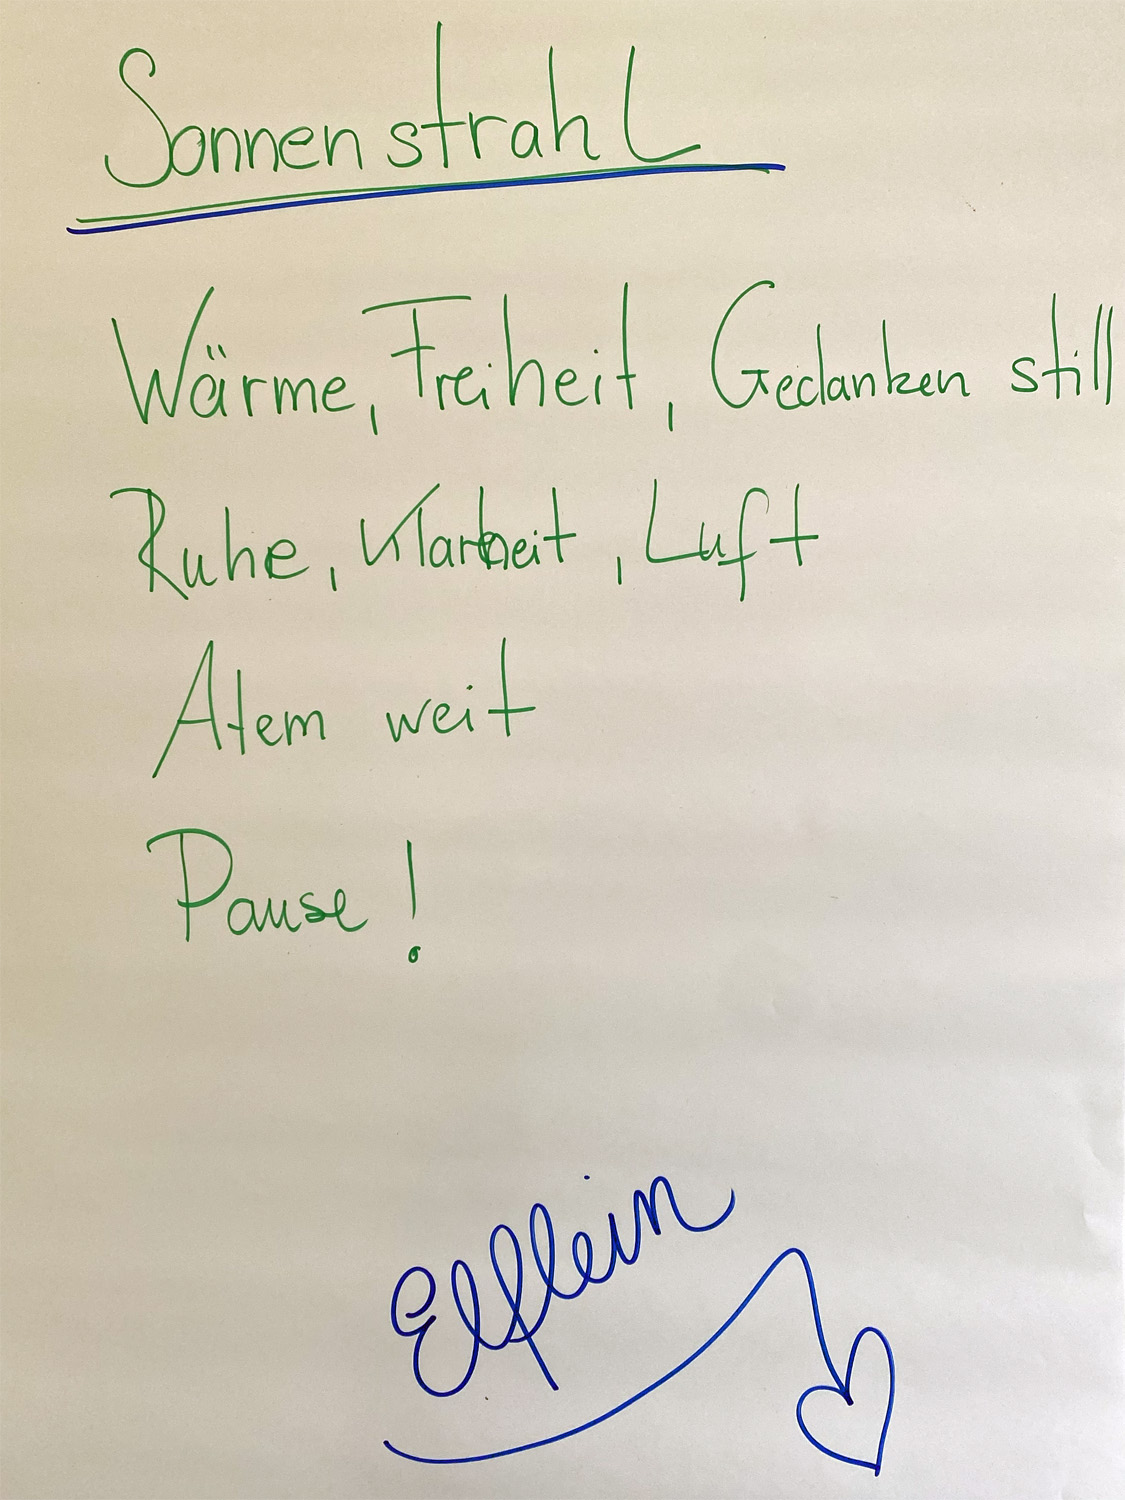 Sonnenstrahl
Wärme, Freiheit, Gedanken still
Ruhe, Klarheit, Luft
Atem weit
Pause!
Elflein